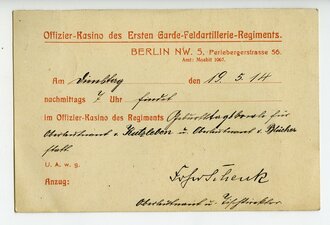 Offizier-Kasino des Ersten Garde-Feldartillerie-Regiments.
BERLIN NW. 5, Perlebergerstrasse 56.
Amt: Moabit 1067.
Am Dienstag den 19.5.14
nachmittags 7 Uhr findet
im Offizier-Kasino des Regiments für
Oberleutnant v. u. Oberleutnant v. Blücher
statt.
U. A. w. g.
Anzug:
Oberleutnant u. Tischdirektor